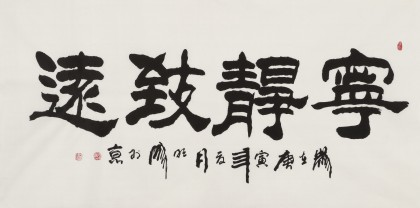 寧靜致遠
歲在庚寅年夏月於京